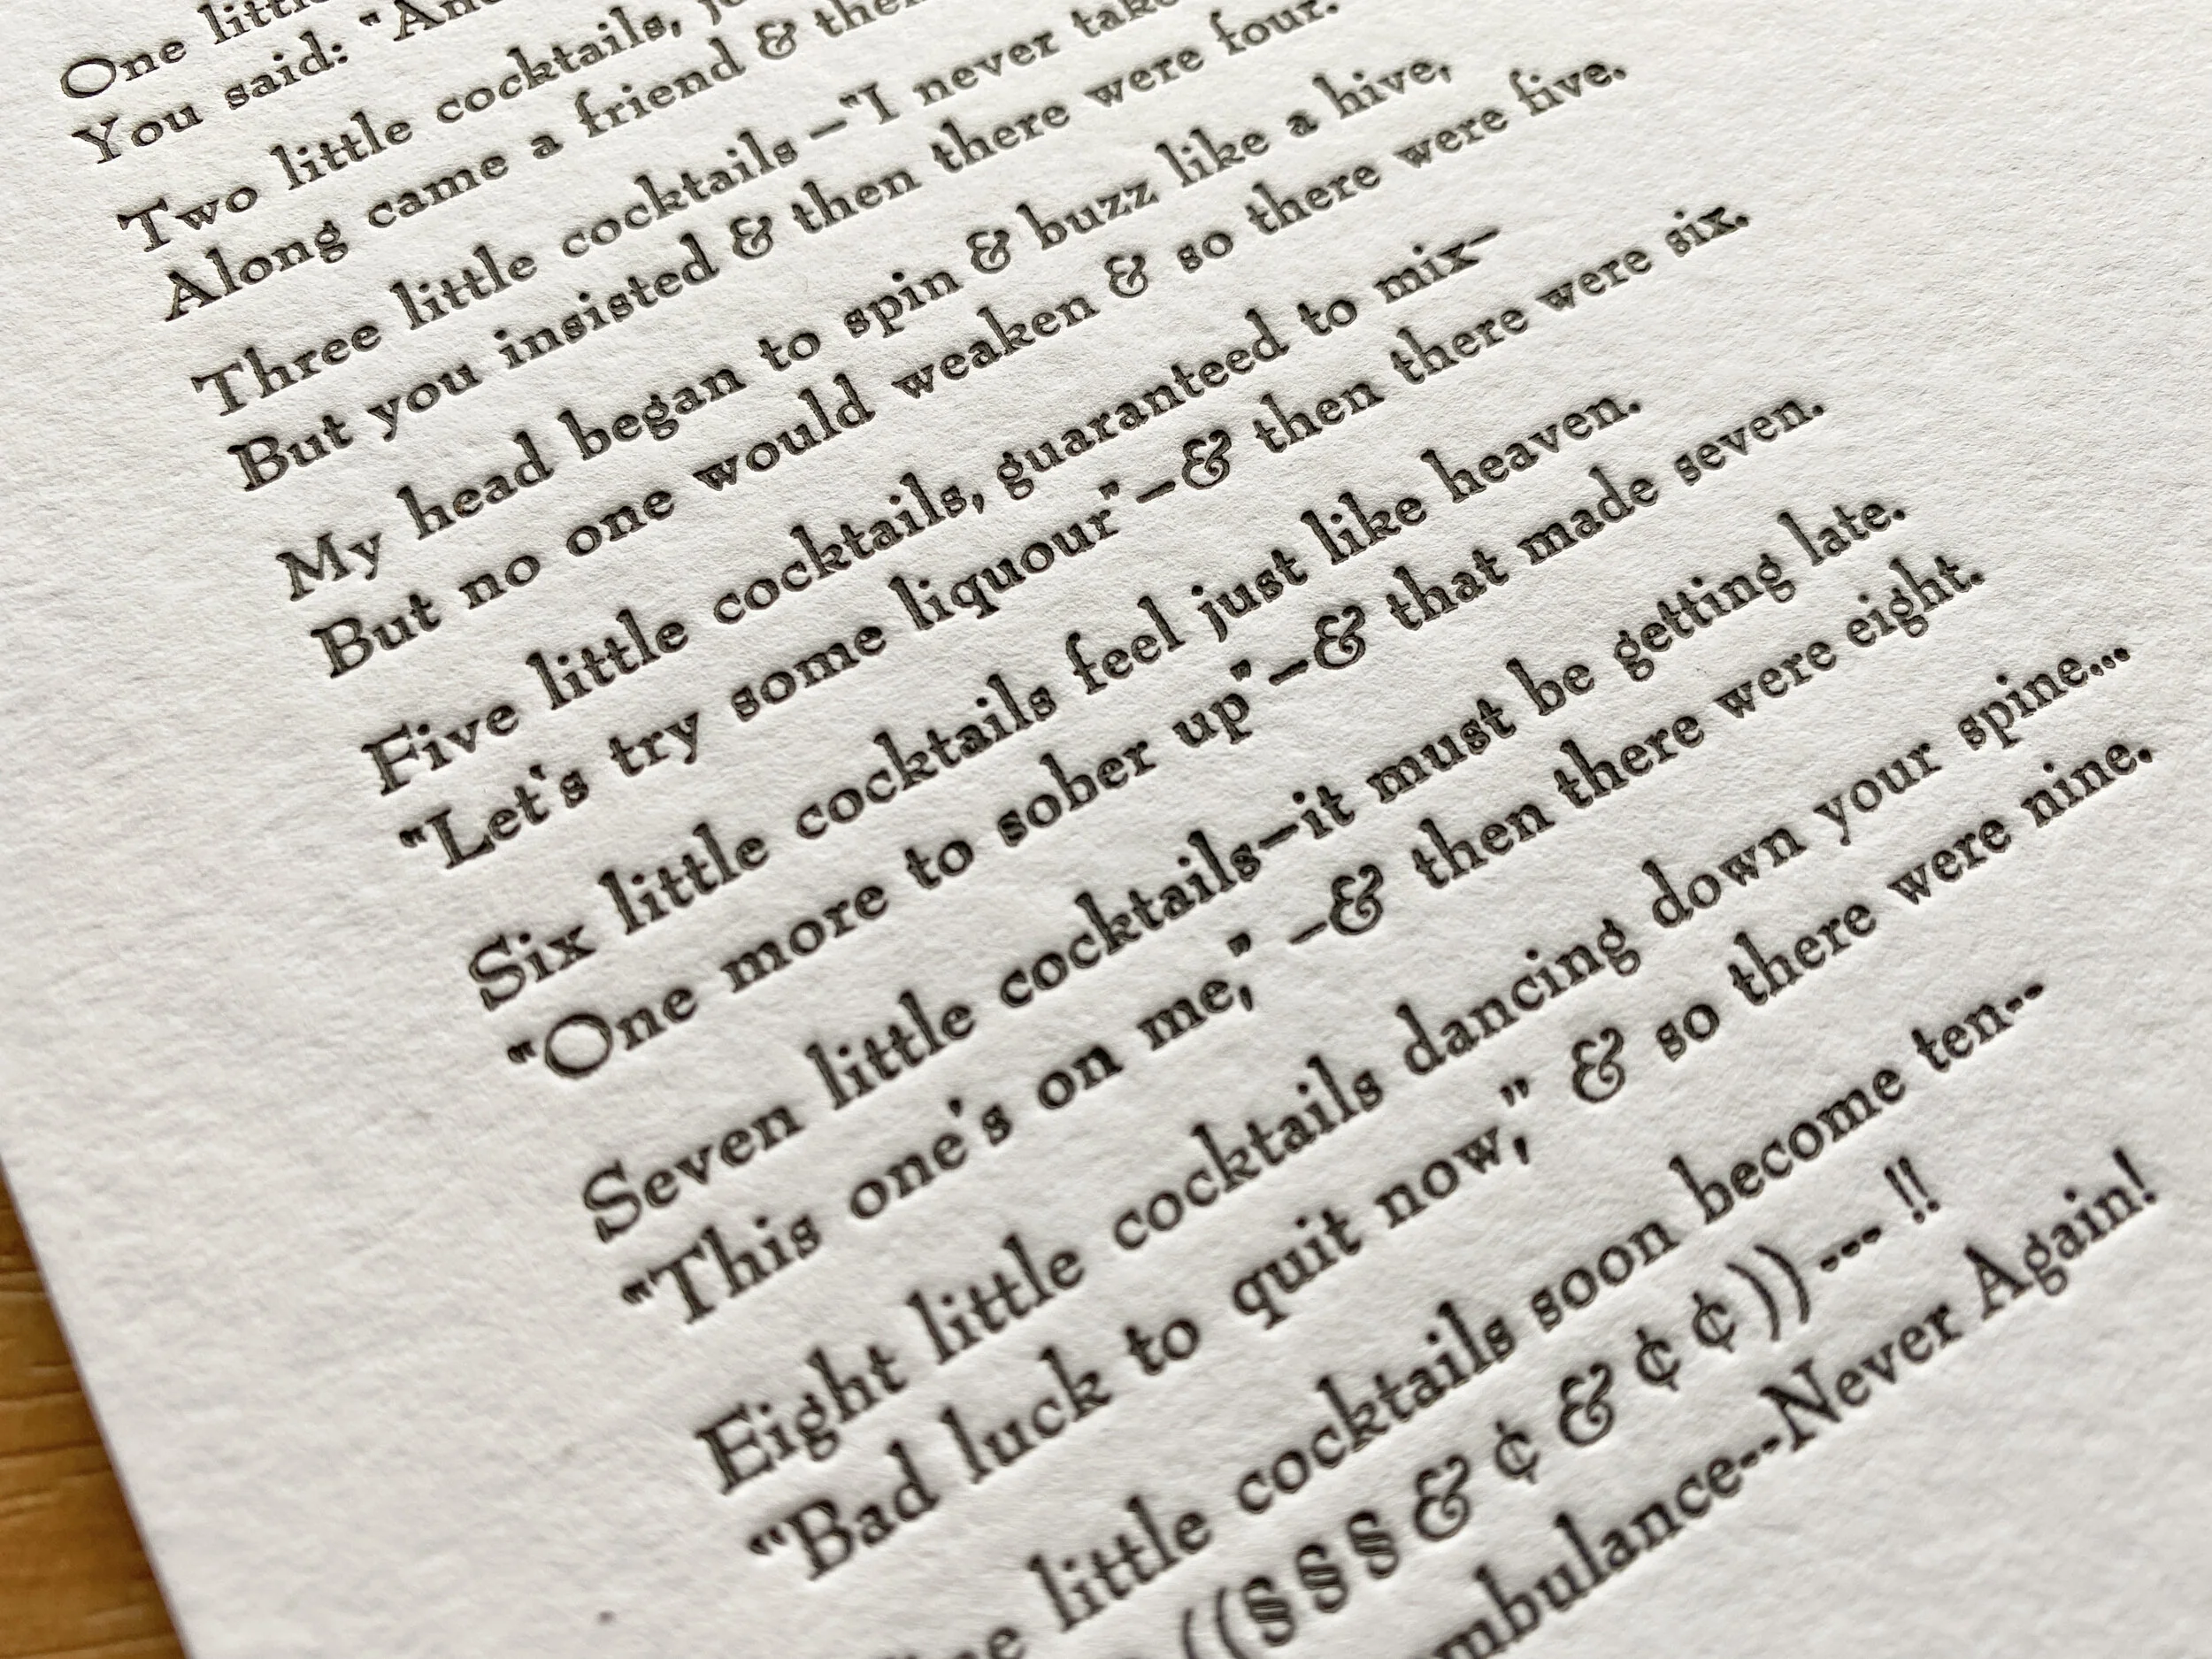 One little
You said: "And
Two little cocktails,
Along came a friend &
Three little cocktails–"I never take
But you insisted & then there were four.
My head began to spin & buzz like a hive,
But no one would weaken & so there were five.
Five little cocktails, guaranteed to mix–
"Let's try some liquour"–& then there were six.
Six little cocktails feel just like heaven.
"One more to sober up"–& that made seven.
Seven little cocktails–it must be getting late.
"This one's on me," –& then there were eight.
Eight little cocktails dancing down your spine...
"Bad luck to quit now," & so there were nine.
little cocktails soon become ten--
((§§§&¢&¢¢))--- !!
--Never Again!